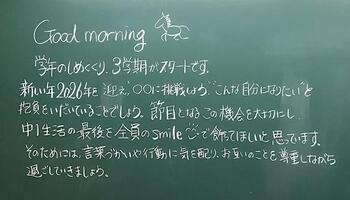 Good morning
学年のしめくくり、3学期がスタートです。
新しい年2026年を迎え、〇〇に挑戦しよう、"こんな自分になりたい"と
抱負をいだいていることでしょう。節目となるこの機会を大切にし、
中1生活の最後を全員のsmileで飾ってほしいと思っています。
そのためには、言葉づかいや行動に気を配り、お互いのことを尊重しながら
過ごしていきましょう。